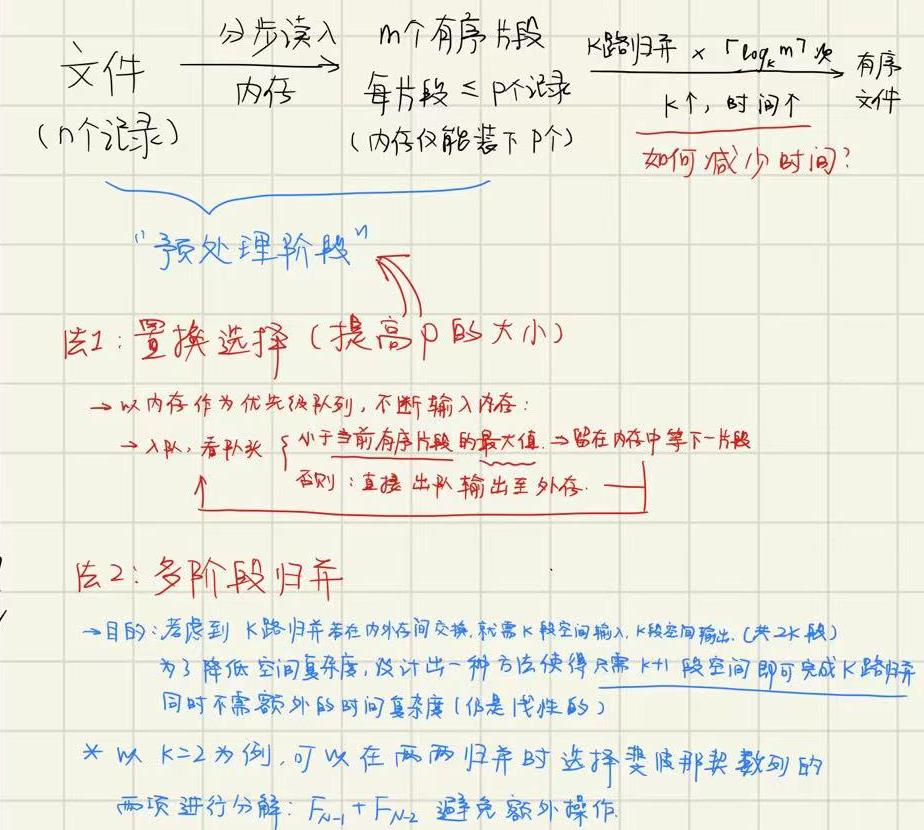 文件 分步读入 m个有序片段 K路归并 × ⌈log_k m⌉次 有序
内存 每片段 ≤ P个记录 K↑, 时间↑ 文件
(n个记录) (内存仅能装下 P个) 如何减少时间?
"预处理阶段"
法1: 置换选择 (提高 P 的大小)
→ 以内存作为优先级队列, 不断输入内存:
→ 入队, 看队头 { 小于当前有序片段的最大值 → 留在内存中等下一片段
否则: 直接出队输出至外存.
法2: 多阶段归并
→ 目的: 考虑到 K路归并若在内外存间交换, 就需K段空间输入, K段空间输出. (共2K段)
为了降低空间复杂度, 设计出一种方法使得只需 K+1 段空间即可完成K路归并
同时不需额外的时间复杂度 (仍是线性的)
* 以 K=2 为例, 可以在两两归并时选择斐波那契数列的
两项进行分解: F_{N-1} + F_{N-2} 避免额外操作.